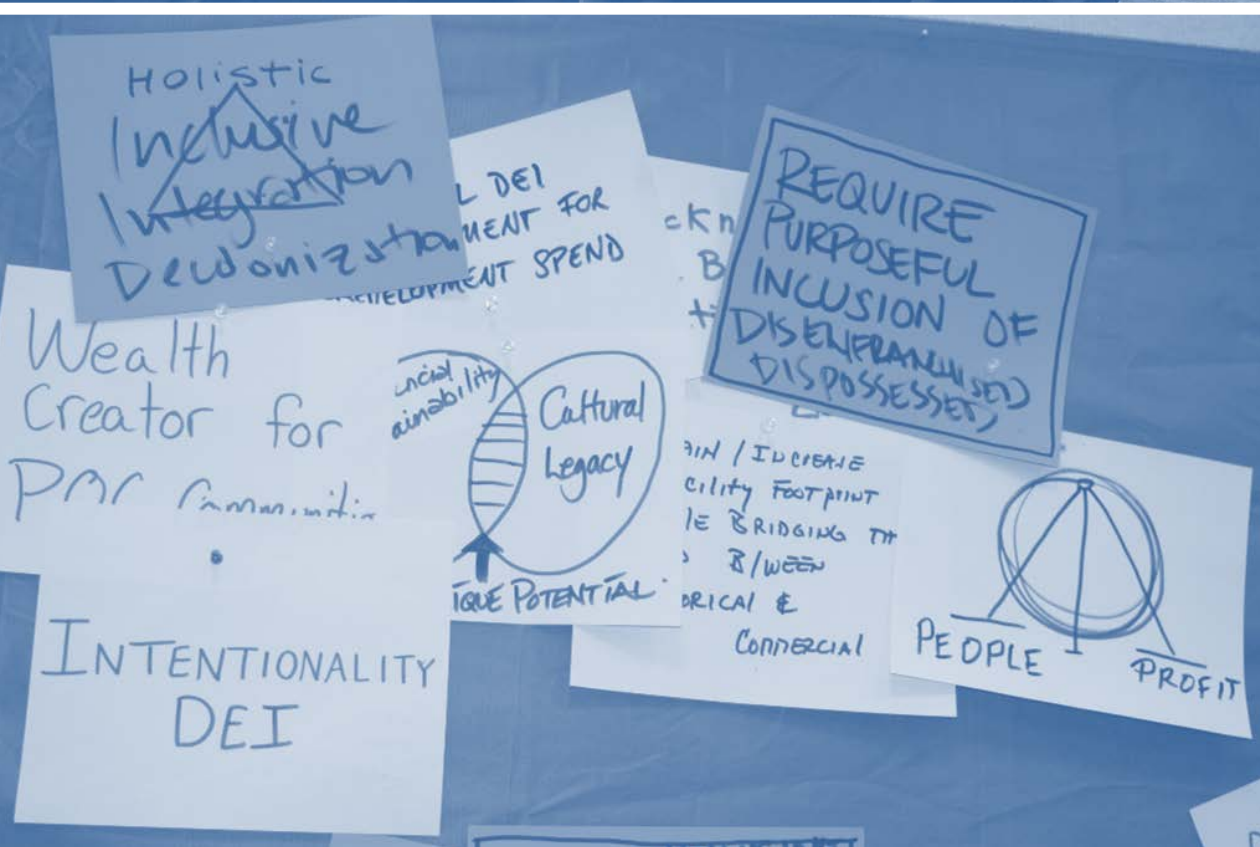 Holistic
Inclusive
Integration
Decolonization
L DEI
MENT FOR
ELOPMENT SPEND
ckn
B
REQUIRE
PURPOSEFUL
INCLUSION OF
DISENFRANCHISED
DISPOSSESSED
Wealth
Creator for
POC Communitie
ncial
ainability
Cultural
Legacy
IQUE POTENTIAL
AIN / INCREASE
CILITY FOOTPRINT
LE BRIDGING TH
B/WEEN
ORICAL &
COMMERCIAL
PEOPLE
PROFIT
INTENTIONALITY
DEI